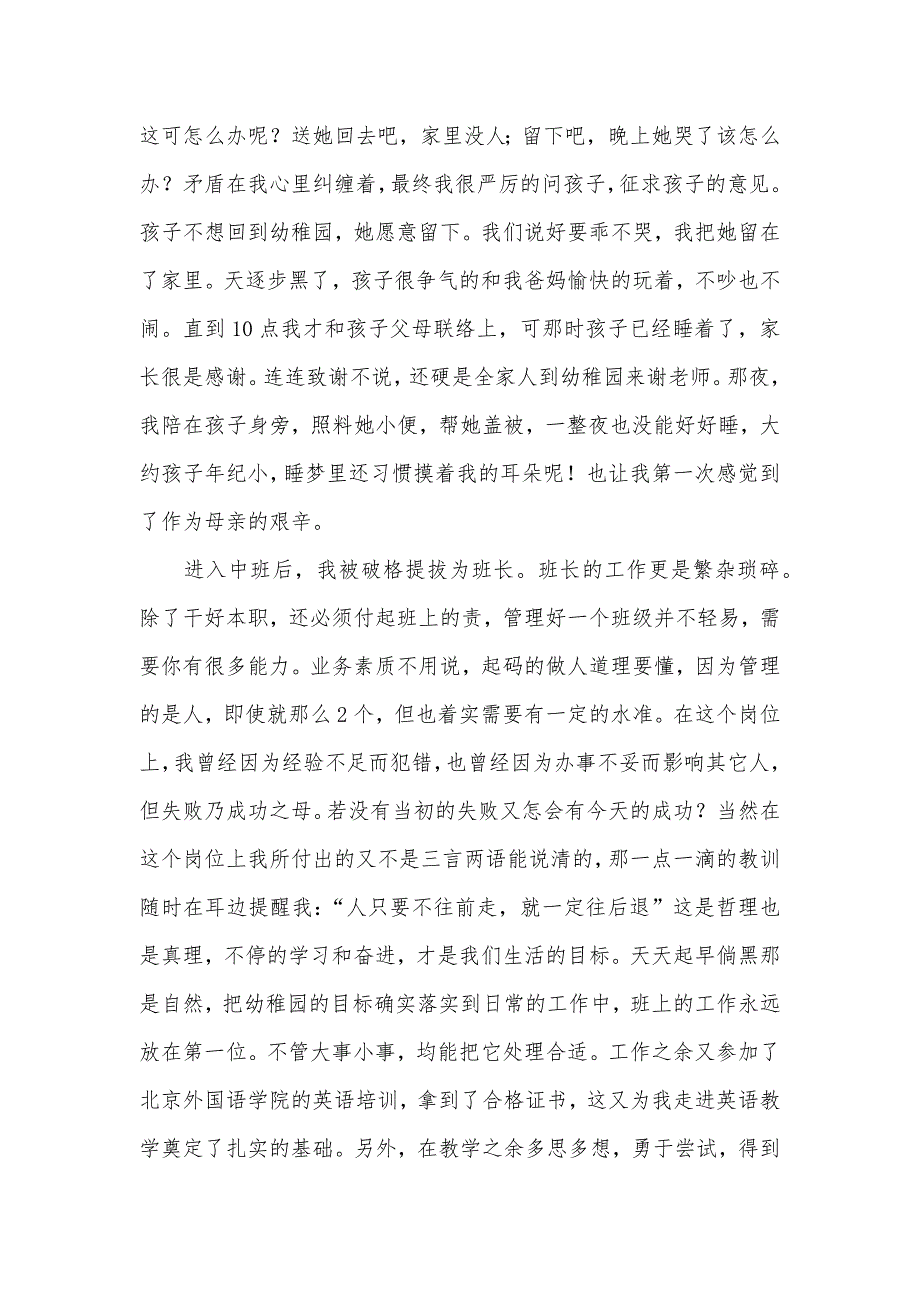 这可怎么办呢？送她回去吧，家里没人；留下吧，晚上她哭了该怎么
办？矛盾在我心里纠缠着，最终我很严厉的问孩子，征求孩子的意见。
孩子不想回到幼稚园，她愿意留下。我们说好要乖不哭，我把她留在
了家里。天逐步黑了，孩子很争气的和我爸妈愉快的玩着，不吵也不
闹。直到 10 点我才和孩子父母联络上，可那时孩子已经睡着了，家
长很是感谢。连连致谢不说，还硬是全家人到幼稚园来谢老师。那夜，
我陪在孩子身旁，照料她小便，帮她盖被，一整夜也没能好好睡，大
约孩子年纪小，睡梦里还习惯摸着我的耳朵呢！也让我第一次感觉到
了作为母亲的艰辛。
进入中班后，我被破格提拔为班长。班长的工作更是繁杂琐碎。
除了干好本职，还必须付起班上的责，管理好一个班级并不轻易，需
要你有很多能力。业务素质不用说，起码的做人道理要懂，因为管理
的是人，即使就那么 2 个，但也着实需要有一定的水准。在这个岗位
上，我曾经因为经验不足而犯错，也曾经因为办事不妥而影响其它人，
但失败乃成功之母。若没有当初的失败又怎会有今天的成功？当然在
这个岗位上我所付出的又不是三言两语能说清的，那一点一滴的教训
随时在耳边提醒我：“人只要不往前走，就一定往后退”这是哲理也
是真理，不停的学习和奋进，才是我们生活的目标。天天起早倘黑那
是自然，把幼稚园的目标确实落实到日常的工作中，班上的工作永远
放在第一位。不管大事小事，均能把它处理合适。工作之余又参加了
北京外国语学院的英语培训，拿到了合格证书，这又为我走进英语教
学奠定了扎实的基础。另外，在教学之余多思多想，勇于尝试，得到